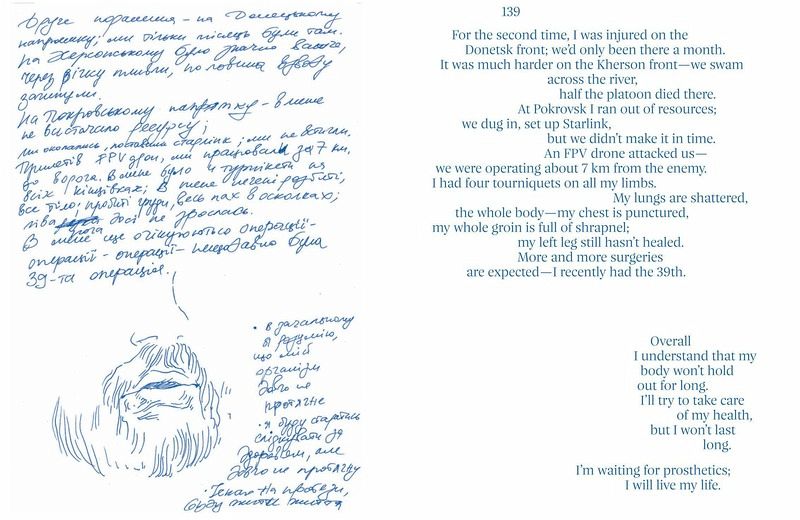 Друге поранення - на Донецькому
напрямку; ми тільки місяць були там.
На Херсонському було значно важче,
через річку пливли, половина взводу
загинули.
На Покровському напрямку - в мене
не вистачило ресурсу;
ми окопались, поставили старлінк; ми не встигли.
Прилетів FPV дрон, ми працювали за 7 км.
до ворога. В мене було 4 турнікети на
всіх кінцівках; В мене легені розбиті,
все тіло; пробиті груди, весь пах в осколках;
ліва нога досі не зрослась.
В мене ще очікуються операції -
операції - операції - нещодавно була
39-та операція.
• в загальному
я розумію,
що мій
організм
довго не
протягне
• я буду старатись
слідкувати за
здоров'ям, але
довго не протягну
• Чекаю на протези,
буду жити життя
139
For the second time, I was injured on the
Donetsk front; we'd only been there a month.
It was much harder on the Kherson front—we swam
across the river,
half the platoon died there.
At Pokrovsk I ran out of resources;
we dug in, set up Starlink,
but we didn't make it in time.
An FPV drone attacked us—
we were operating about 7 km from the enemy.
I had four tourniquets on all my limbs.
My lungs are shattered,
the whole body—my chest is punctured,
my whole groin is full of shrapnel;
my left leg still hasn't healed.
More and more surgeries
are expected—I recently had the 39th.
Overall
I understand that my
body won't hold
out for long.
I'll try to take care
of my health,
but I won't last
long.
I'm waiting for prosthetics;
I will live my life.